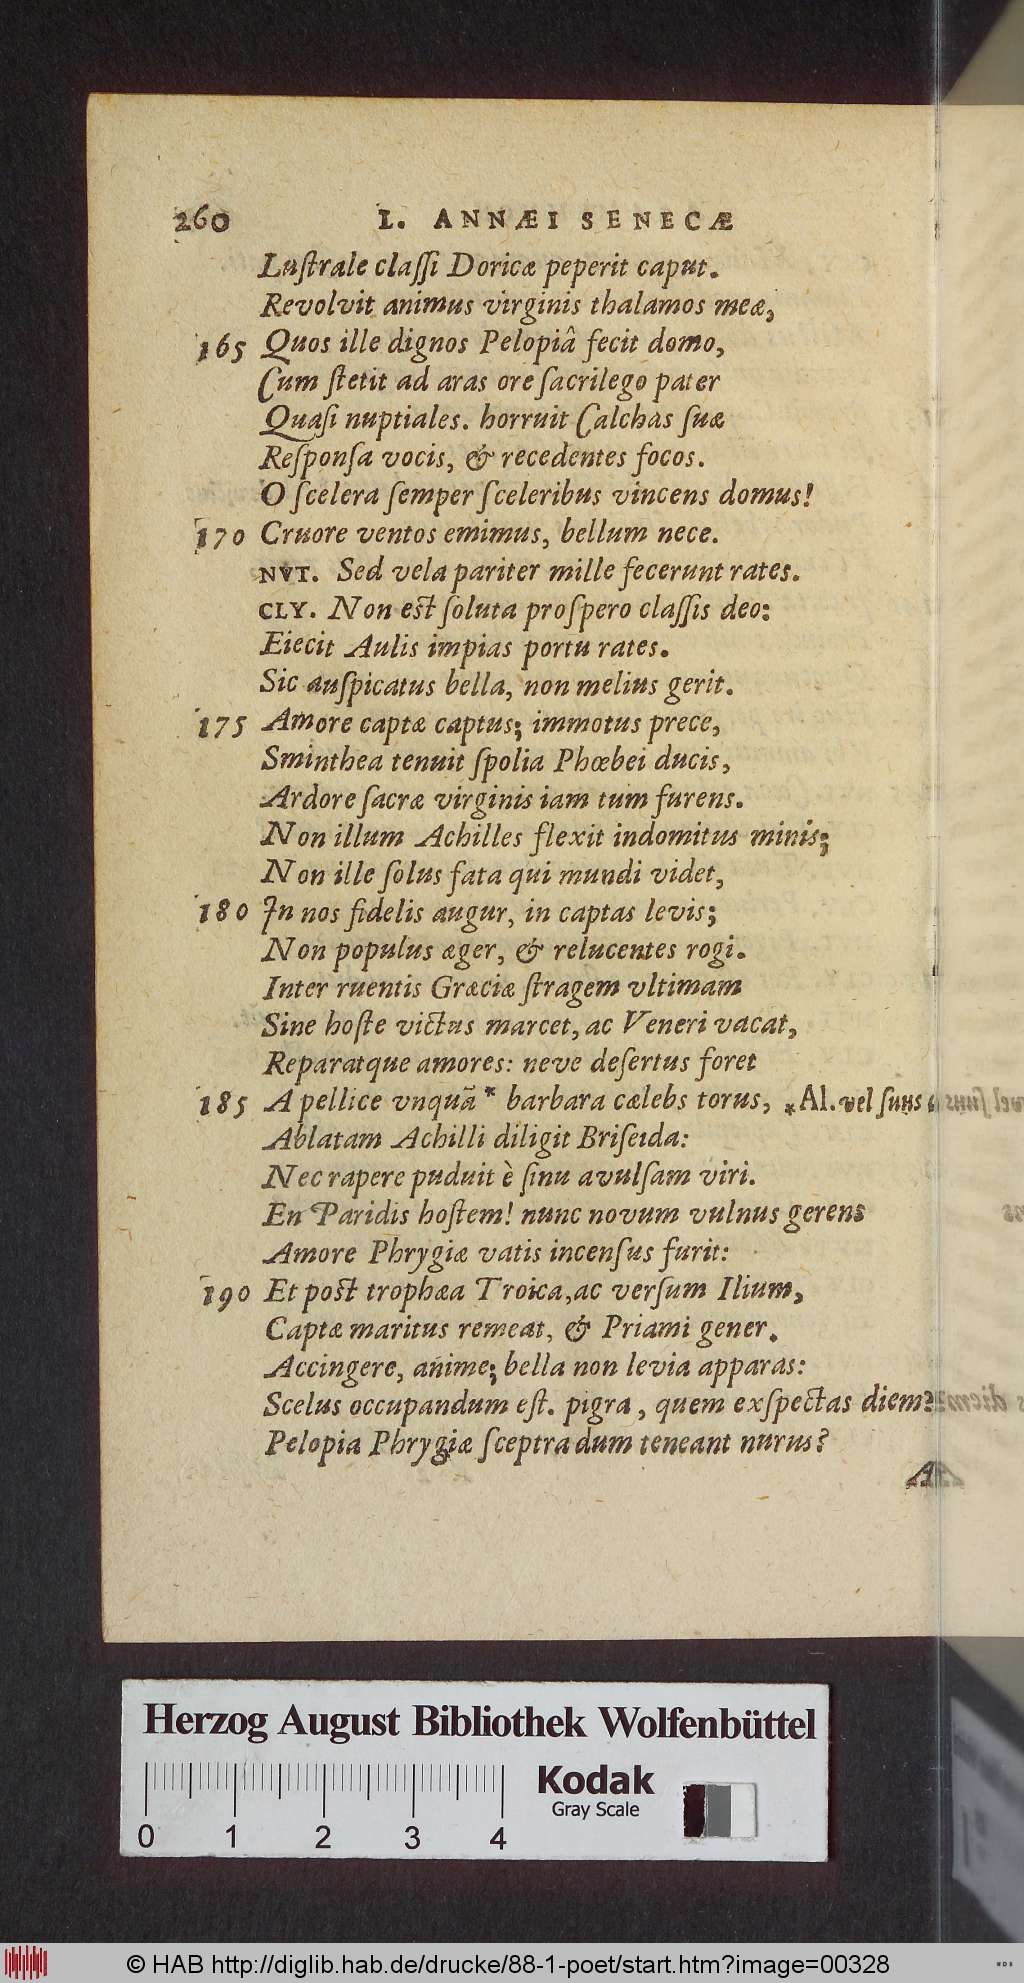 260 L. ANNÆI SENECÆ
Lustrale classi Doricæ peperit caput.
Revolvit animus virginis thalamos meæ,
165 Quos ille dignos Pelopiâ fecit domo,
Cum stetit ad aras ore sacrilego pater
Quasi nuptiales. horruit Calchas suæ
Responsa vocis, & recedentes focos.
O scelera semper sceleribus vincens domus!
170 Cruore ventos emimus, bellum nece.
NVT. Sed vela pariter mille fecerunt rates.
CLY. Non est soluta prospero classis deo:
Eiecit Aulis impias portu rates.
Sic auspicatus bella, non melius gerit.
175 Amore captæ captus; immotus prece,
Sminthea tenuit spolia Phœbei ducis,
Ardore sacræ virginis iam tum furens.
Non illum Achilles flexit indomitus minis;
Non ille solus fata qui mundi videt,
180 In nos fidelis augur, in captas levis;
Non populus æger, & relucentes rogi.
Inter ruentis Græciæ stragem vltimam
Sine hoste victus marcet, ac Veneri vacat,
Reparatque amores: neve desertus foret
185 A pellice vnquã * barbara cælebs torus, * Al. vel suus
Ablatam Achilli diligit Briseida:
Nec rapere puduit è sinu avulsam viri.
En Paridis hostem! nunc novum vulnus gerens
Amore Phrygiæ vatis incensus furit:
190 Et post trophæa Troica, ac versum Ilium,
Captæ maritus remeat, & Priami gener.
Accingere, anime; bella non levia apparas:
Scelus occupandum est. pigra, quem exspectas diem?
Pelopia Phrygiæ sceptra dum teneant nurus?
Herzog August Bibliothek Wolfenbüttel
Kodak
Gray Scale
0 1 2 3 4
© HAB http://diglib.hab.de/drucke/88-1-poet/start.htm?image=00328